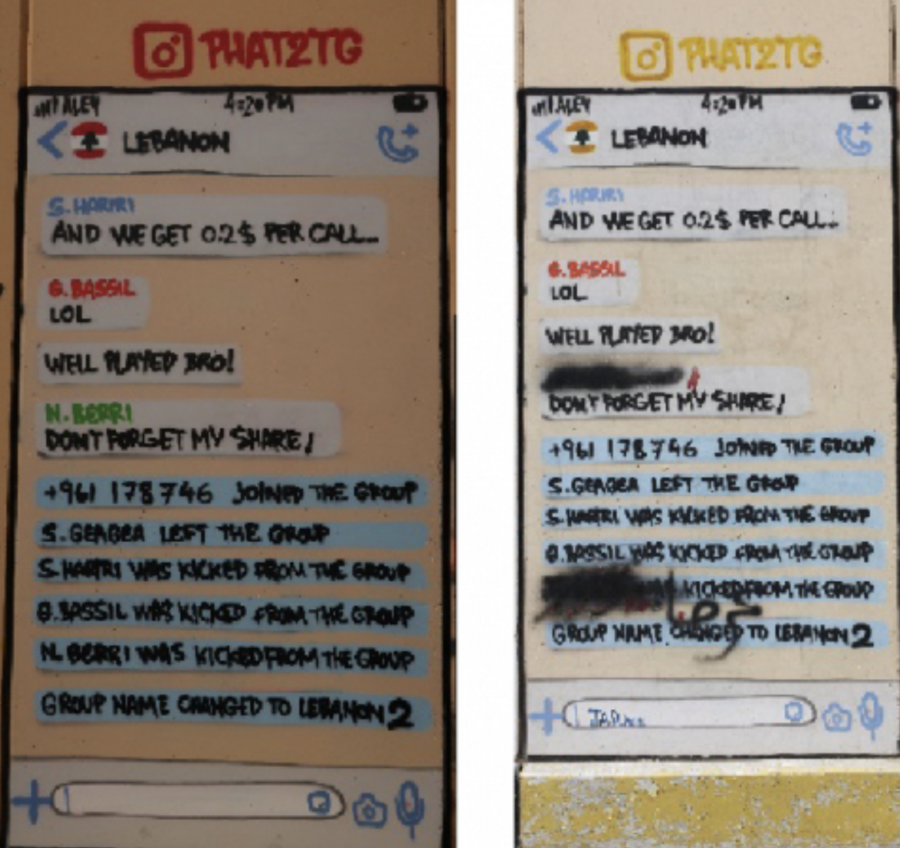 PHAT2TG
ALEY 4:20 PM
LEBANON
S. HARIRI
AND WE GET 0.2$ PER CALL...
G. BASSIL
LOL
WELL PLAYED BRO!
N. BERRI
DON'T FORGET MY SHARE!
+961 178746 JOINED THE GROUP
S. GEAGEA LEFT THE GROUP
S. HARIRI WAS KICKED FROM THE GROUP
G. BASSIL WAS KICKED FROM THE GROUP
N. BERRI WAS KICKED FROM THE GROUP
GROUP NAME CHANGED TO LEBANON 2
PHAT2TG
ALEY 4:20 PM
LEBANON
S. HARIRI
AND WE GET 0.2$ PER CALL...
G. BASSIL
LOL
WELL PLAYED BRO!
DON'T FORGET MY SHARE!
+961 178746 JOINED THE GROUP
S. GEAGEA LEFT THE GROUP
S. HARIRI WAS KICKED FROM THE GROUP
G. BASSIL WAS KICKED FROM THE GROUP
KICKED FROM THE GROUP
GROUP NAME CHANGED TO LEBANON 2